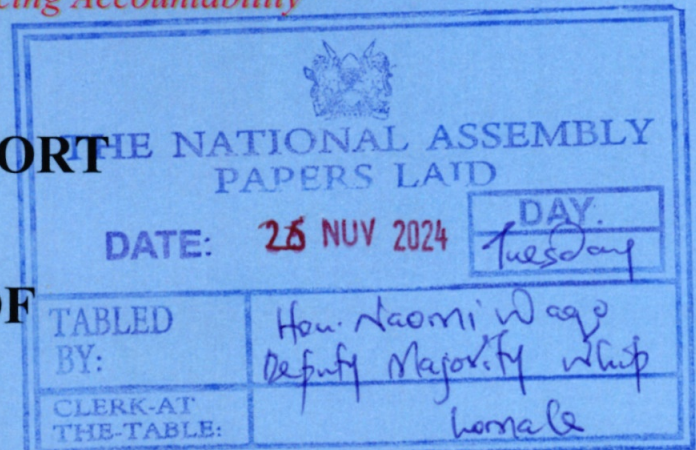 cing Accountability
ORT
THE NATIONAL ASSEMBLY
PAPERS LAID
DATE: 26 NOV 2024
DAY.
Tuesday
OF
TABLED BY:
Hon. Naomi Waqo
Deputy Majority Whip
CLERK-AT THE-TABLE: